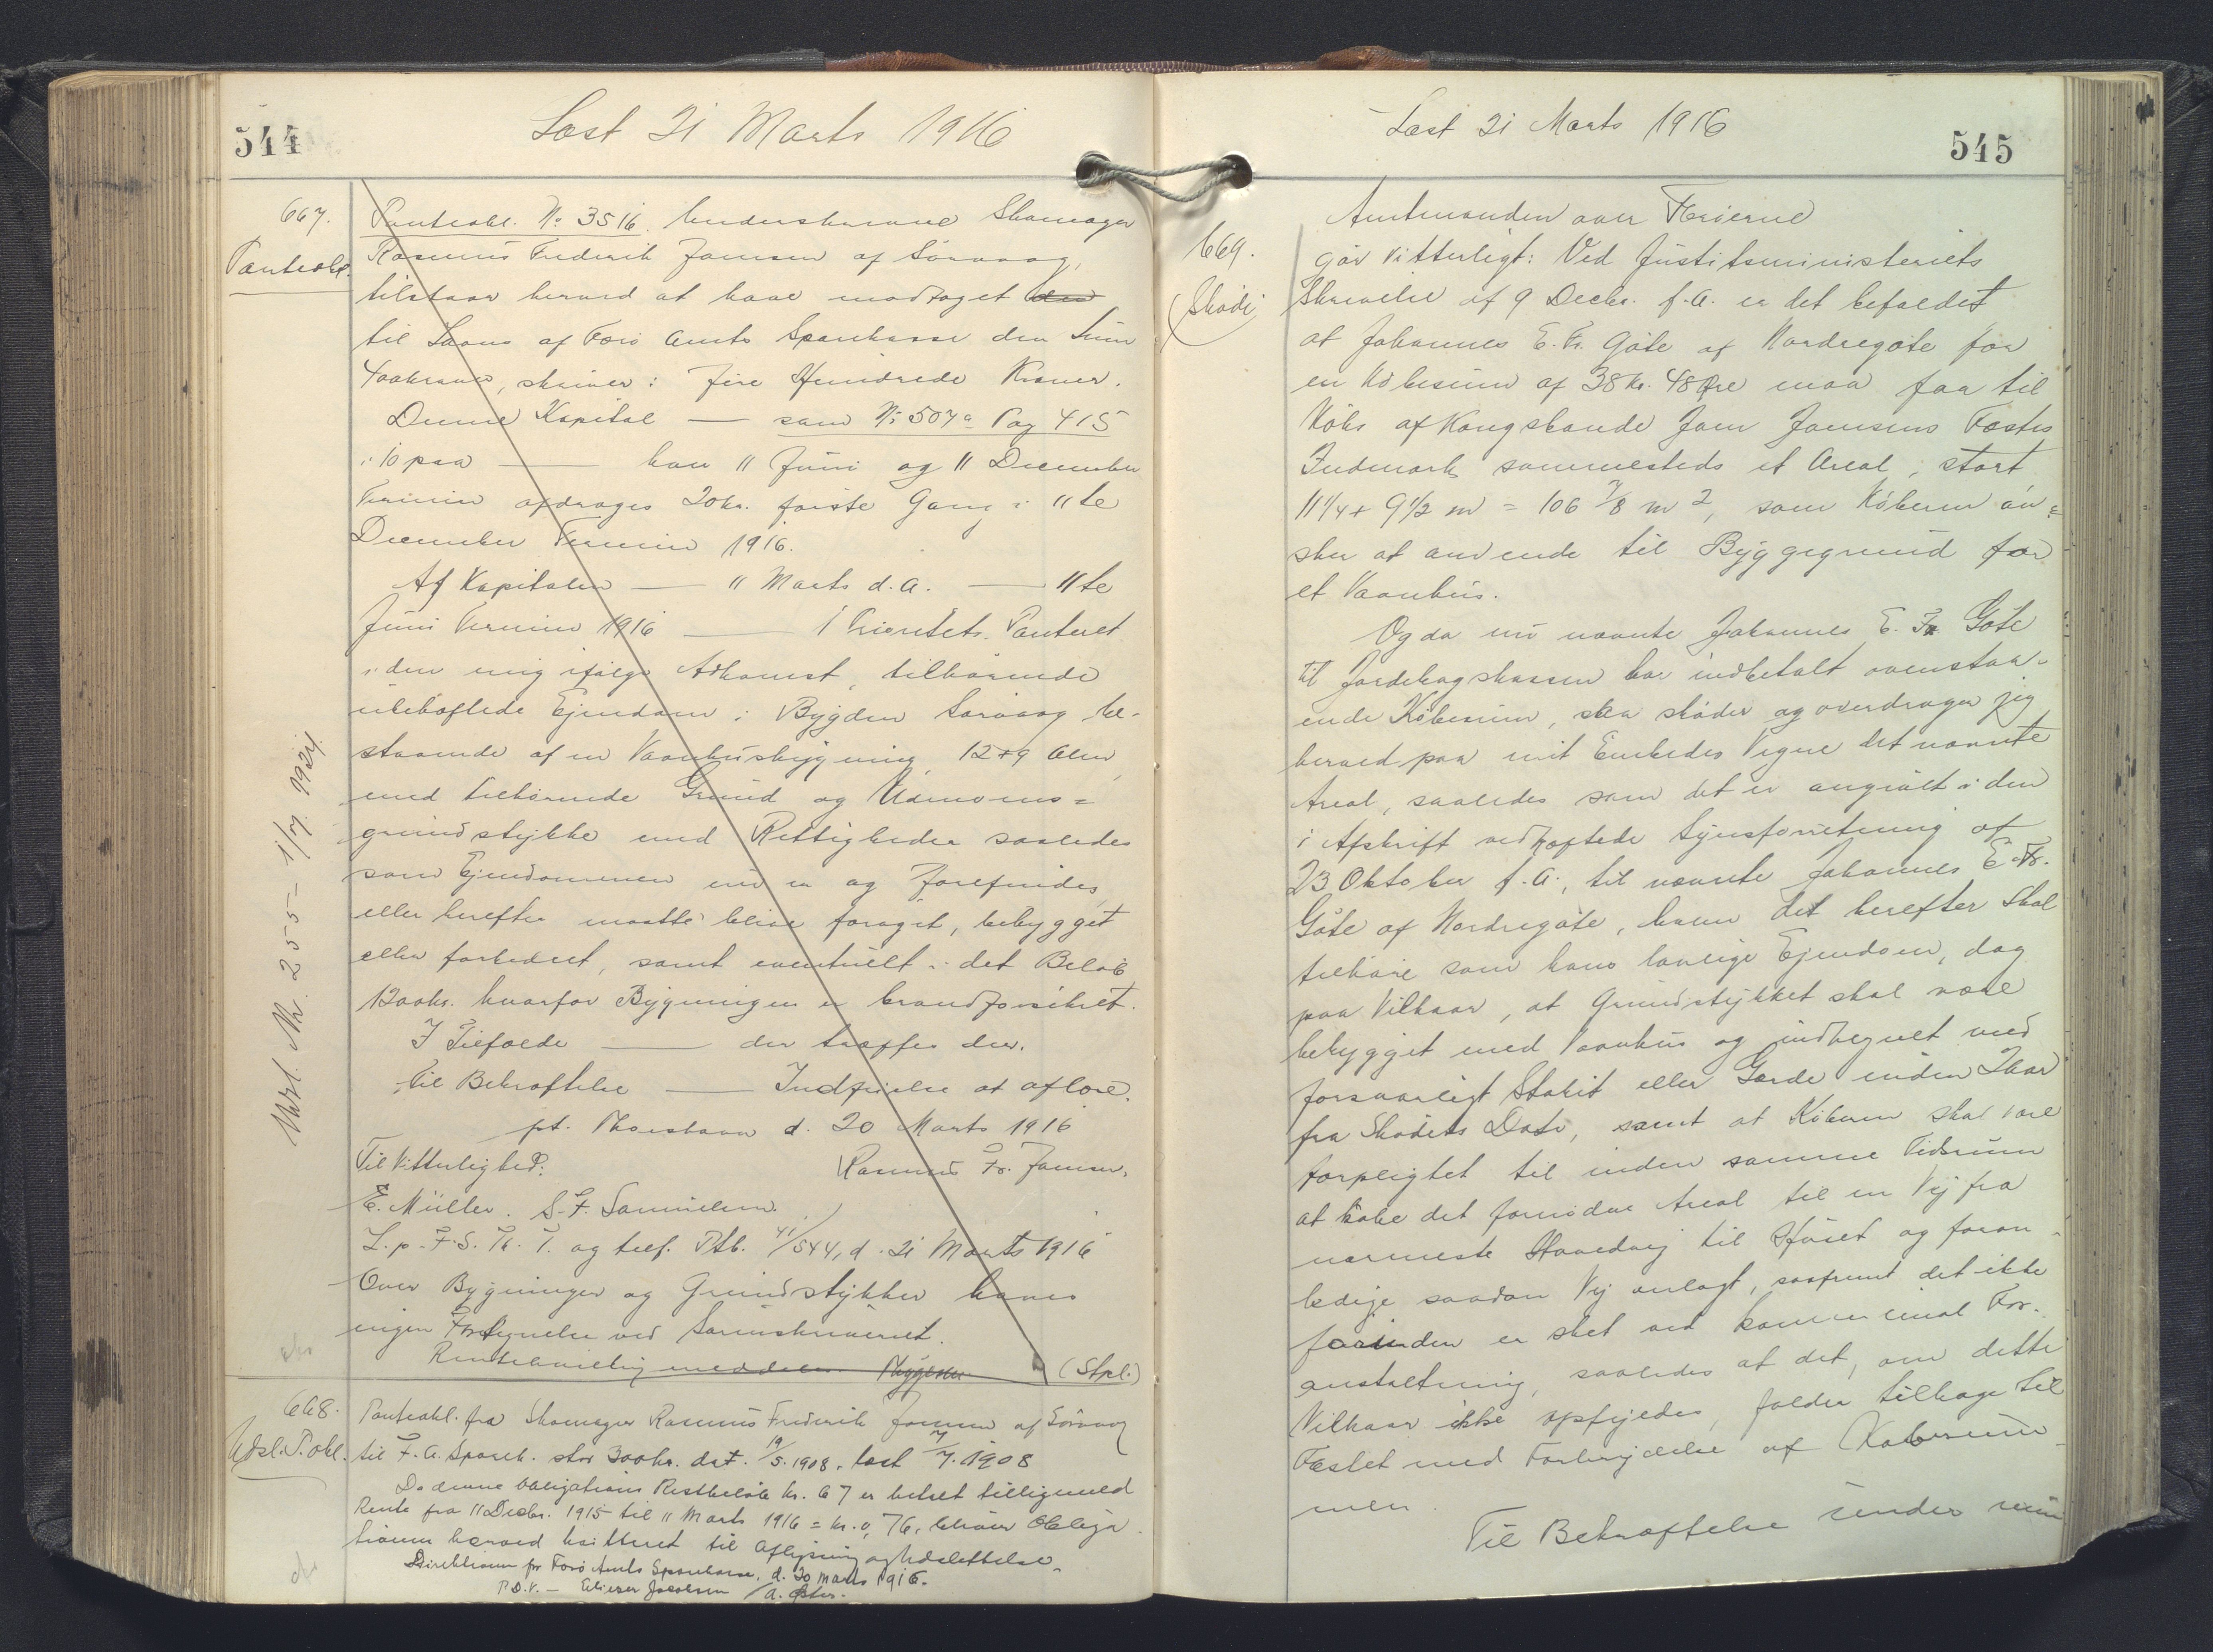 544
Læst 21 Marts 1916
667.
Panteobl.
Panteobl. No 3516. Underskrevne Skomager
Rasmus Frederik Joensen af Sörvaag,
tilstaar herved at have modtaget den
til Laans af Færö Amts Sparekasse den Sum
400 kroner, skriver: Fire Hundrede Kroner.
Denne Kapital — som No 507a Pag 415
i: 10 paa — hver 11 Juni og 11 December
Termin afdrages 20 kr. förste Gang i 11te
December Termin 1916.
Af Kapitalen — 11 Marts d.A. — 11te
Juni Termin 1916 — 1 Prioritets Panteret
i den mig ifölge Adkomst, tilhörende
ubehæftede Ejendom i Bygden Sörvaag be-
staaende af en Vaanhusbygning, 12 + 9 Alen,
med tilhörende Grund og Udmarks=
grundstykke med Rettigheder saaledes
som Ejendommen nu er og forefindes,
eller herefter maatte blive foröget, bebygget
eller forbedret, samt eventuelt i det Belöb
1200 kr. hvorfor Bygningen er brandforsikret.
I Tilfælde — der træffes der.
Til Bekræftelse — Indfrielse at aflöse.
pt. Thorshavn d. 20 Marts 1916
Til Vitterlighed: Rasmus Fr. Joensen.
E. Müller. S.F. Samuelsen.
L.p.F.S.Th.T. og tilf. Ptb. 41/544, d. 21 Marts 1916
Over Bygninger og Grundstykker haves
ingen Forsynelse ved Sorenskriveriet.
Rentekvittering meddeles. (Stpl.)
Udsl. Nr. 255 - 1/7. 1924
668.
Udsl. P.obl.
Panteobl. fra Skomager Rasmus Frederik Joensen af Sörvaag
til F.A. Spark. stor 300 kr. dat. 19/5.1908. læst 7/7.1908
Da denne Obligations Restbelöb kr. 67 er betalt tilligemed
Rente fra 11 Decbr. 1915 til 11 Marts 1916 = kr. 0,76, bliver Obliga
tionen herved kvitteret til Aflysning og Udslettelse.
Direktionen for Færö Amts Sparekasse, d. 20 Marts 1916.
P.D.V. — Elieser Jacobsen
Læst 21 Marts 1916
545
669.
Sköde
Amtmanden over Færöerne
gör vitterligt: Ved Justitsministeriets
Skrivelse af 9 Decbr. f.A. er det befalet
at Johannes E. Fr. Göte af Nordregöte for
en Köbesum af 38 kr. 48 Öre maa faa til
Köbs af Kongsbonde Joen Joensens Fæstes
Indmark sammesteds et Areal, stort
11 1/4 + 9 1/2 m = 106 7/8 m2, som Köberen ön=
sker at anvende til Byggegrund for
et Vaanhus.
Og da nu nævnte Johannes E. Fr. Göte
til Jordebogskassen har indbetalt ovenstaa-
ende Köbesum, saa sköder og overdrager jeg
herved paa mit Embedes Vegne det nævnte
Areal, saaledes som det er angivet i den
i Afskrift vedhæftede Synsforretning af
23 Oktober f.A., til nævnte Johannes E. Fr.
Göte af Nordregöte, hvem det herefter skal
tilhöre som hans lovlige Ejendom, dog
paa Vilkaar, at Grundstykket skal være
bebygget med Vaanhus og indhegnet med
forsvarligt Stakit eller Gærde inden 2 Aar
fra Sködets Dato, samt at Köberen skal være
forpligtet til inden samme Tidsrum
at köbe det fornödne Areal til en Vej fra
nærmeste Hovedvej til Huset og foran-
ledige saadan Vej anlagt, saafremt det ikke
forinden er sket ved kommunal For-
anstaltning, saaledes at det, om dette
Vilkaar ikke opfyldes, falder tilbage til
Fæstet med Fortrydelse af Köbesum-
men.
Til Bekræftelse under min